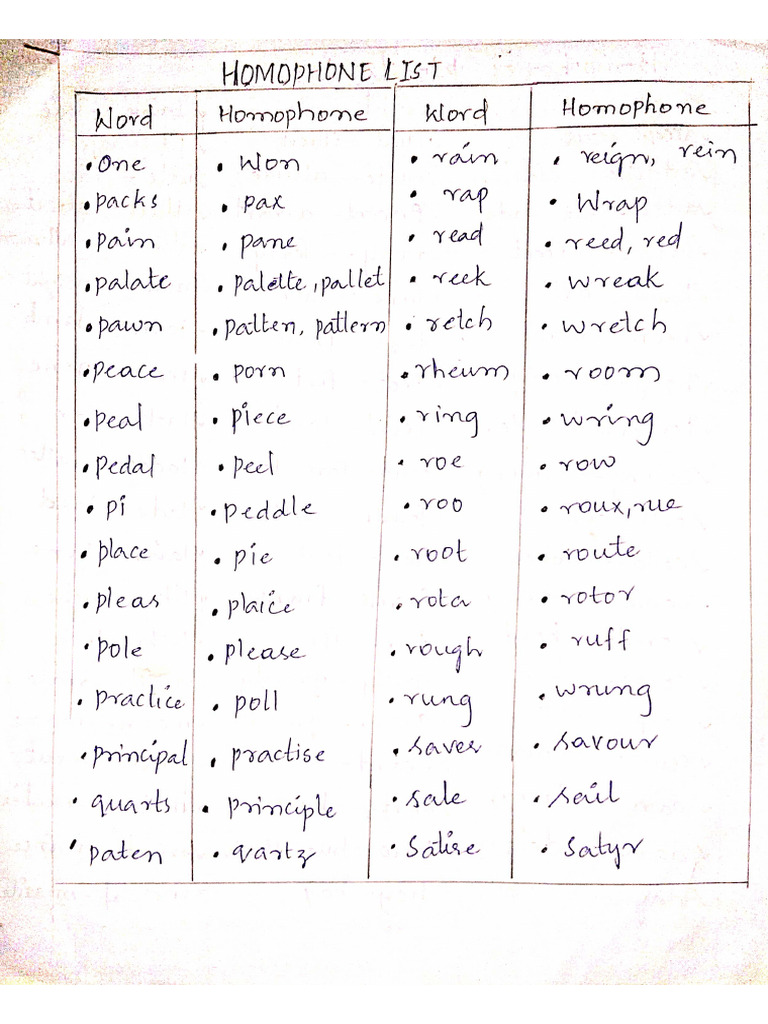 HOMOPHONE LIST
Word Homophone Word Homophone
• One • Won • rain • reign, rein
• packs • pax • rap • Wrap
• pain • pane • read • reed, red
• palate • palette, pallet • reek • wreak
• pawn • patten, pattern • retch • wretch
• peace • porn • rheum • room
• peal • piece • ring • wring
• pedal • peel • roe • row
• pi • peddle • roo • roux, rue
• place • pie • root • route
• pleas • plaice • rota • rotor
• pole • please • rough • ruff
• practice • poll • rung • wrung
• principal • practise • saver • savour
• quarts • principle • sale • sail
• paten • qartz • Satire • Satyr